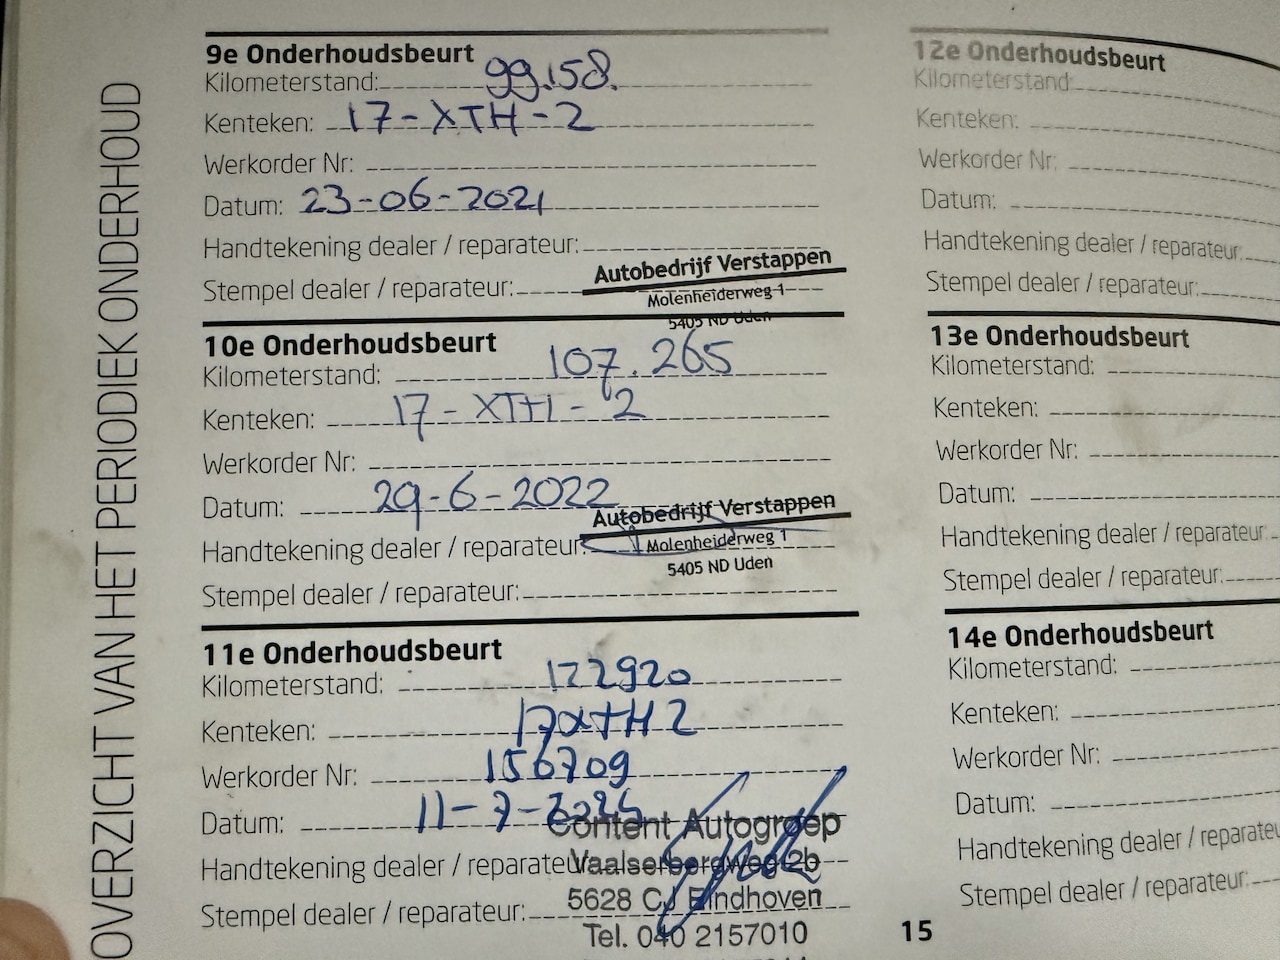 OVERZICHT VAN HET PERIODIEK ONDERHOUD
9e Onderhoudsbeurt
Kilometerstand: 99.158.
Kenteken: 17-XTH-2
Werkorder Nr:
Datum: 23-06-2021
Handtekening dealer / reparateur:
Stempel dealer / reparateur:
Autobedrijf Verstappen
Molenheiderweg 1
5405 ND Uden
10e Onderhoudsbeurt
Kilometerstand: 107.265
Kenteken: 17-XTH-2
Werkorder Nr:
Datum: 29-6-2022
Handtekening dealer / reparateur:
Autobedrijf Verstappen
Molenheiderweg 1
5405 ND Uden
Stempel dealer / reparateur:
11e Onderhoudsbeurt
Kilometerstand: 122920
Kenteken: 17XTH2
Werkorder Nr: 156709
Datum: 11-7-
Handtekening dealer / reparateur:
Stempel dealer / reparateur:
Content Autogroep
Vaalserbergweg 2b
5628 CJ Eindhoven
Tel. 040 2157010
12e Onderhoudsbeurt
Kilometerstand:
Kenteken:
Werkorder Nr:
Datum:
Handtekening dealer / reparateur:
Stempel dealer / reparateur:
13e Onderhoudsbeurt
Kilometerstand:
Kenteken:
Werkorder Nr:
Datum:
Handtekening dealer / reparateur:
Stempel dealer / reparateur:
14e Onderhoudsbeurt
Kilometerstand:
Kenteken:
Werkorder Nr:
Datum:
Handtekening dealer / reparateu
Stempel dealer / reparateur:
15